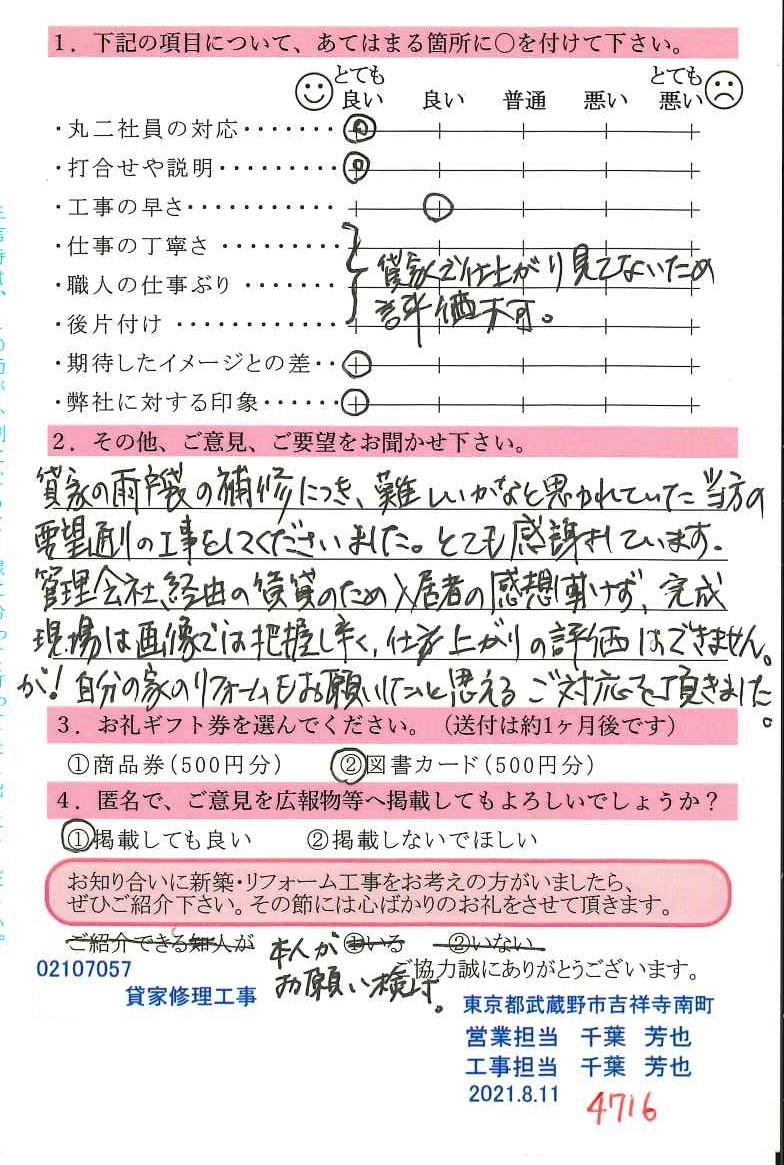 1．下記の項目について、あてはまる箇所に○を付けて下さい。
とても良い 良い 普通 悪い とても悪い
・丸二社員の対応・・・・・・・
・打合せや説明・・・・・・・・・
・工事の早さ・・・・・・・・・・・
・仕事の丁寧さ・・・・・・・・
・職人の仕事ぶり・・・・・・・
・後片付け・・・・・・・・・・・・
貸家で仕上がり見てないため
評価不可。
・期待したイメージとの差・・
・弊社に対する印象・・・・・・
2．その他、ご意見、ご要望をお聞かせ下さい。
貸家の雨戸袋の補修につき、難しいかなと思われていた当方の
要望通りの工事をしてくださいました。とても感謝しています。
管理会社経由の賃貸のため入居者の感想聞けず、完成
現場は画像では把握し辛く、仕上がりの評価はできません。
が！自分の家のリフォームもお願いしたいと思えるご対応を頂きました。
3．お礼ギフト券を選んでください。（送付は約1ヶ月後です）
①商品券(500円分) ②図書カード(500円分)
4．匿名で、ご意見を広報物等へ掲載してもよろしいでしょうか？
①掲載しても良い ②掲載しないでほしい
お知り合いに新築・リフォーム工事をお考えの方がいましたら、
ぜひご紹介下さい。その節には心ばかりのお礼をさせて頂きます。
ご紹介できる知人が ①いる ②いない
本人が
お願い検討。
ご協力誠にありがとうございます。
02107057
貸家修理工事
東京都武蔵野市吉祥寺南町
営業担当 千葉 芳也
工事担当 千葉 芳也
2021.8.11
4716